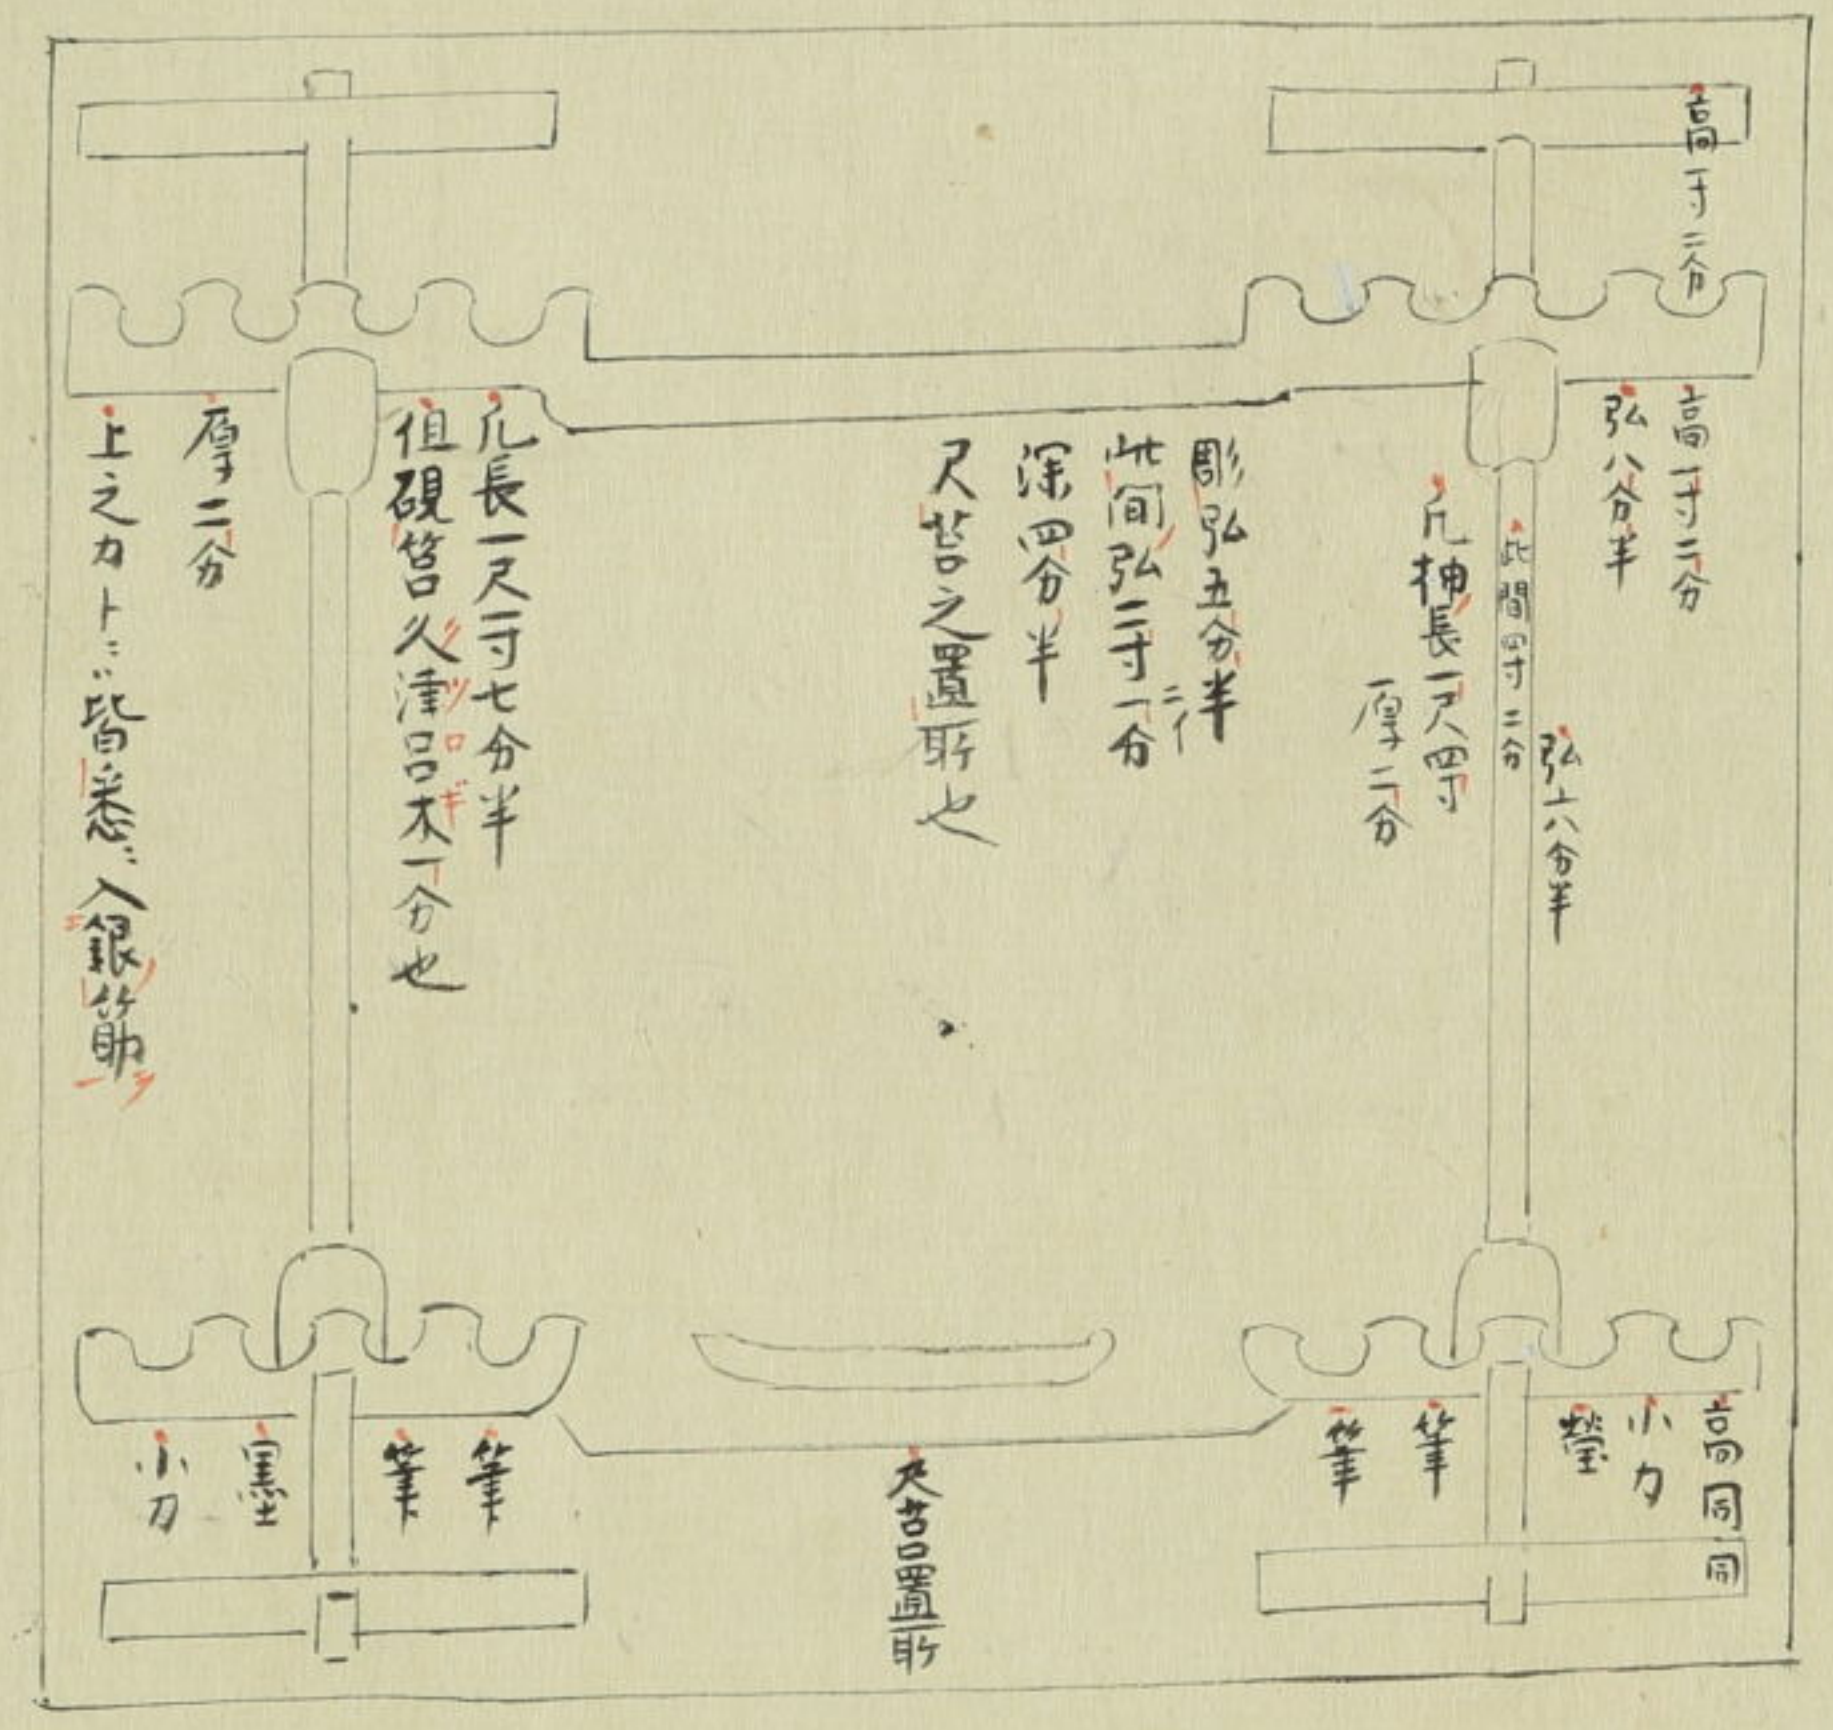 高一寸二分
高一寸二分
弘八分半
弘六分半
此間四寸二分
凡柚長一尺四寸
厚二分
彫弘五分半
此間弘二寸一分
二イ
深四分半
尺筥之置所也
凡長一尺一寸七分半
但硯筥久津呂木一分也
クツロギ
厚二分
上之カト〻〻皆悉〻入銀筋
高同同
小刀
瑩
筆
筆
尺筥置所
筆
筆
墨
小刀